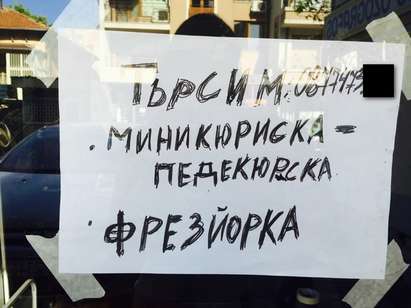 ТЪРСИМ: 0877473
· МИНИКЮРИСКА -
ПЕДЕКЮРСКА
· ФРЕЗЙОРКА